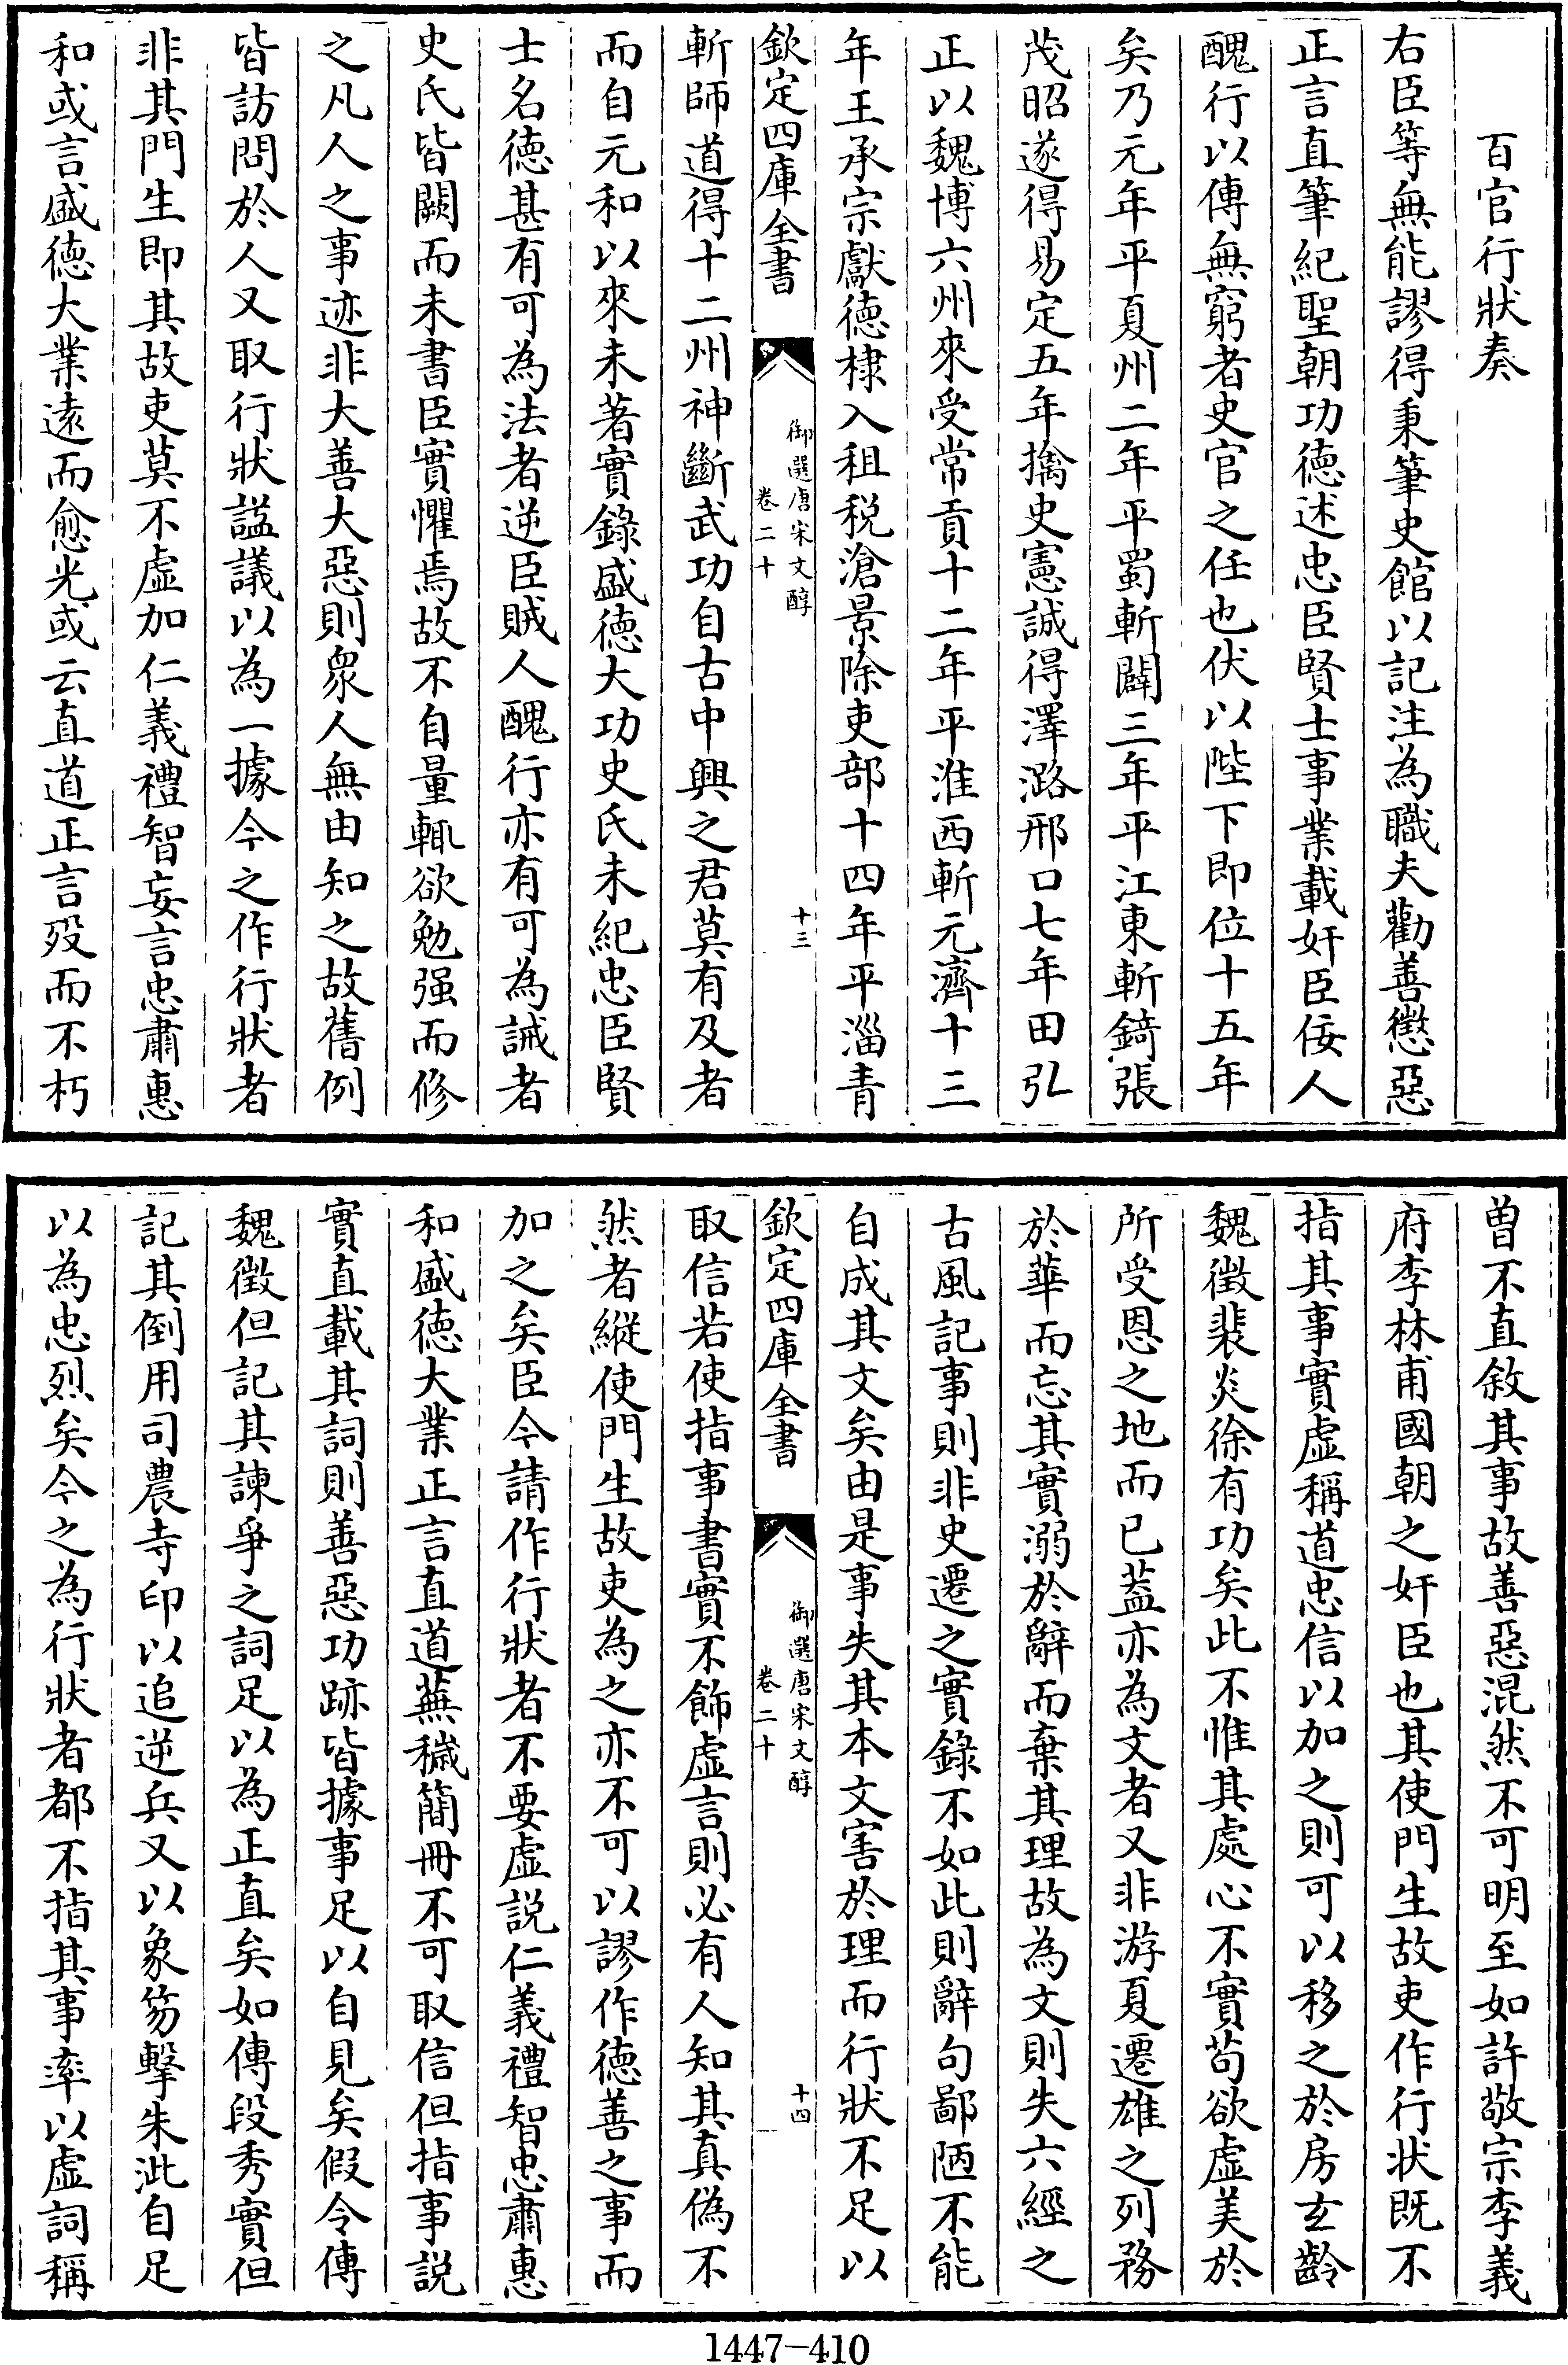 百官行狀奏
右臣等無能謬得秉筆史館以記注為職夫勸善懲惡
正言直筆紀聖朝功德述忠臣賢士事業載奸臣佞人
醜行以傳無窮者史官之任也伏以陛下即位十五年
矣乃元年平夏州二年平蜀斬闢三年平江東斬錡張
茂昭遂得易定五年擒史憲誠得澤潞邢口七年田弘
正以魏博六州來受常貢十二年平淮西斬元濟十三
年王承宗獻德棣入租税滄景除吏部十四年平淄青
欽定四庫全書
御選唐宋文醇
卷二十
十三
斬師道得十二州神斷武功自古中興之君莫有及者
而自元和以來未著實錄盛德大功史氏未紀忠臣賢
士名德甚有可為法者逆臣賊人醜行亦有可為誡者
史氏皆闕而未書臣實懼焉故不自量輒欲勉强而修
之凡人之事迹非大善大惡則衆人無由知之故舊例
皆訪問於人又取行狀諡議以為一據今之作行狀者
非其門生即其故吏莫不虛加仁義禮智妄言忠肅惠
和或言盛德大業遠而愈光或云直道正言歿而不朽
曾不直敘其事故善惡混然不可明至如許敬宗李義
府李林甫國朝之奸臣也其使門生故吏作行狀既不
指其事實虛稱道忠信以加之則可以移之於房玄齡
魏徵裴炎徐有功矣此不惟其處心不實苟欲虛美於
所受恩之地而已蓋亦為文者又非游夏遷雄之列務
於華而忘其實溺於辭而棄其理故為文則失六經之
古風記事則非史遷之實錄不如此則辭句鄙陋不能
自成其文矣由是事失其本文害於理而行狀不足以
欽定四庫全書
御選唐宋文醇
卷二十
十四
取信若使指事書實不飾虛言則必有人知其真偽不
然者縱使門生故吏為之亦不可以謬作德善之事而
加之矣臣今請作行狀者不要虛説仁義禮智忠肅惠
和盛德大業正言直道蕪穢簡冊不可取信但指事説
實直載其詞則善惡功跡皆據事足以自見矣假令傳
魏徵但記其諫爭之詞足以為正直矣如傳段秀實但
記其倒用司農寺印以追逆兵又以象笏擊朱泚自足
以為忠烈矣今之為行狀者都不指其事率以虛詞稱
1447-410